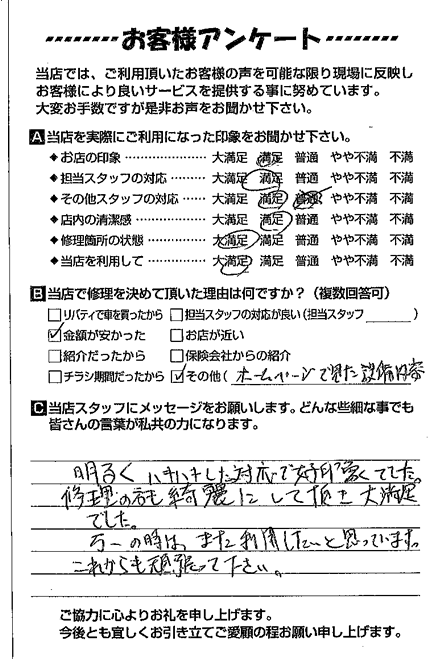 お客様アンケート
当店では、ご利用頂いたお客様の声を可能な限り現場に反映し
お客様により良いサービスを提供する事に努めています。
大変お手数ですが是非お声をお聞かせ下さい。
A 当店を実際にご利用になった印象をお聞かせ下さい。
◆お店の印象 ………………… 大満足 満足 普通 やや不満 不満
◆担当スタッフの対応 ……… 大満足 満足 普通 やや不満 不満
◆その他スタッフの対応 …… 大満足 満足 普通 やや不満 不満
◆店内の清潔感 ……………… 大満足 満足 普通 やや不満 不満
◆修理箇所の状態 …………… 大満足 満足 普通 やや不満 不満
◆当店を利用して …………… 大満足 満足 普通 やや不満 不満
B 当店で修理を決めて頂いた理由は何ですか？（複数回答可）
□リバティで車を買ったから □担当スタッフの対応が良い(担当スタッフ______)
☑金額が安かった □お店が近い
□紹介だったから □保険会社からの紹介
□チラシ期間だったから ☑その他( ホームページで見た設備内容
C 当店スタッフにメッセージをお願いします。どんな些細な事でも
皆さんの言葉が私共の力になります。
明るくハキハキした対応で好印象でした。
修理の方も綺麗にして頂き大満足
でした。
万一の時は、また利用したいと思っています。
これからも頑張って下さい。
ご協力に心よりお礼を申し上げます。
今後とも宜しくお引き立てご愛顧の程お願い申し上げます。